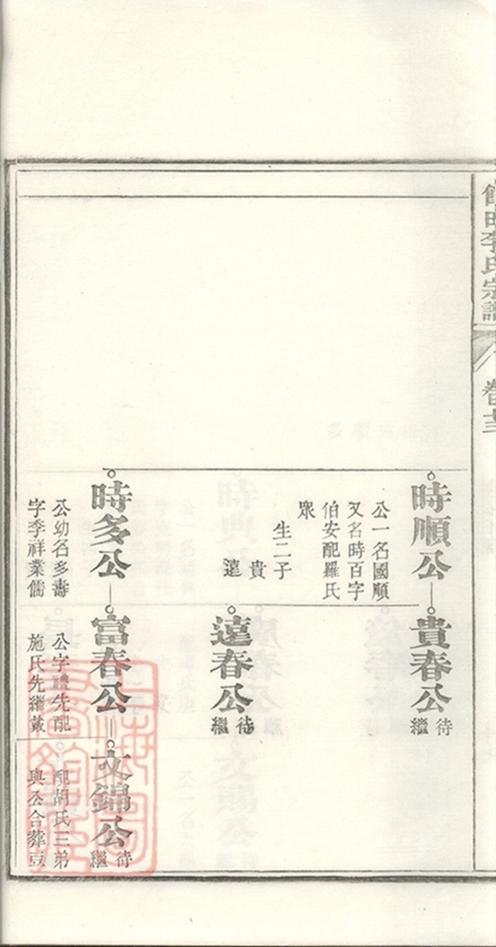 李氏宗譜
時順公
公一名國順
又名時百字
伯安配羅氏
眾
生二子
貴
遠
貴春公
待繼
遠春公
待繼
時多公
公幼名多壽
字李祥業儒
富春公
公字體先配
施氏先繼黃
文錦公
待繼
配胡氏三弟
與公合葬豆